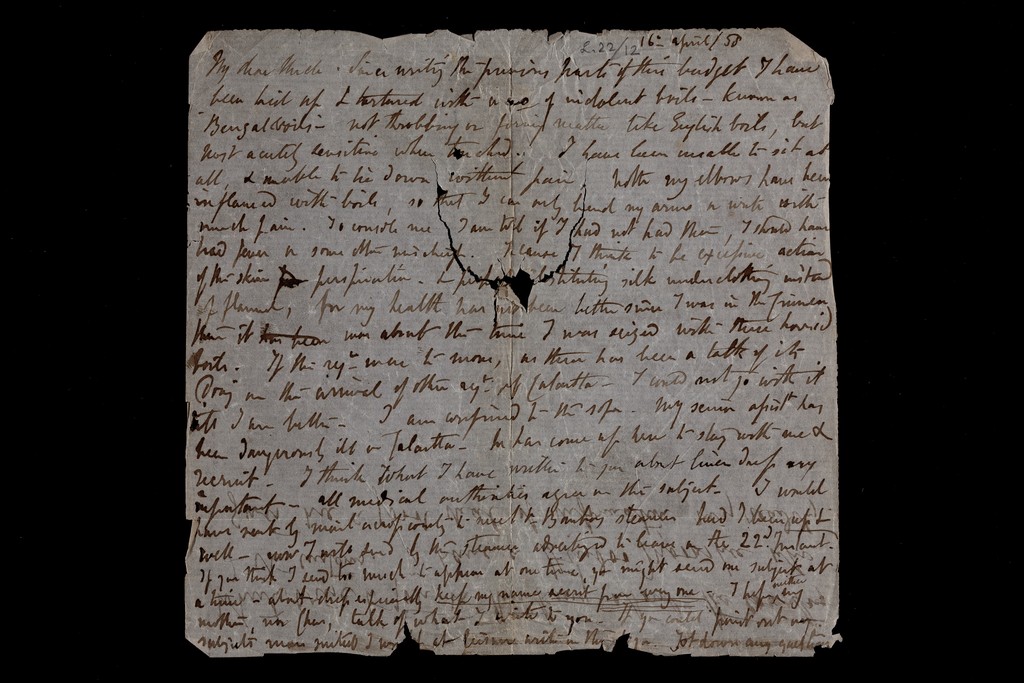 L. 22/12 16th april/58
My dear Uncle. Since writing the previous parts of this budget I have
been laid up & tortured with a no of indolent boils - known as
Bengal boils - not throbbing or forming matter like English boils, but
most acutely sensitive when touched. I have been unable to sit at
all, & unable to lie down without pain both my elbows have been
inflamed with boils, so that I can only bend my arms or write with
much pain. To console me I am told if I had not had them, I should have
had fever or some other mischief. because I think to be excessive action
of the skin perspiration. & substituting silk underclothing instead
of flannel, for my health has not been better since I was in the Crimea
than it has been was about the time I was seized with these horrid
boils. If the regt were to move, as there has been a talk of its
doing on the arrival of other regts at Calcutta - I could not go with it
till I am better - I am confined to the sofa. My senior assist has
been dangerously ill in Calcutta - he has come up here to stay with me &
recruit - I think what I have written to you about linen is very
important - all medical authorities agree on the subject - I would
have sent by mail to Bombay steamer had I been up &
well - now I will send by the steamer advertized to leave on the 22d Instant.
If you think I send too much to appear at one time, you might send one subject at
a time - about especially keep my name secret from every one - I hope neither my
mother, nor Chas, talk of what I write to you - If you could point out any
subjects more I at leisure write on them Jot down any questions